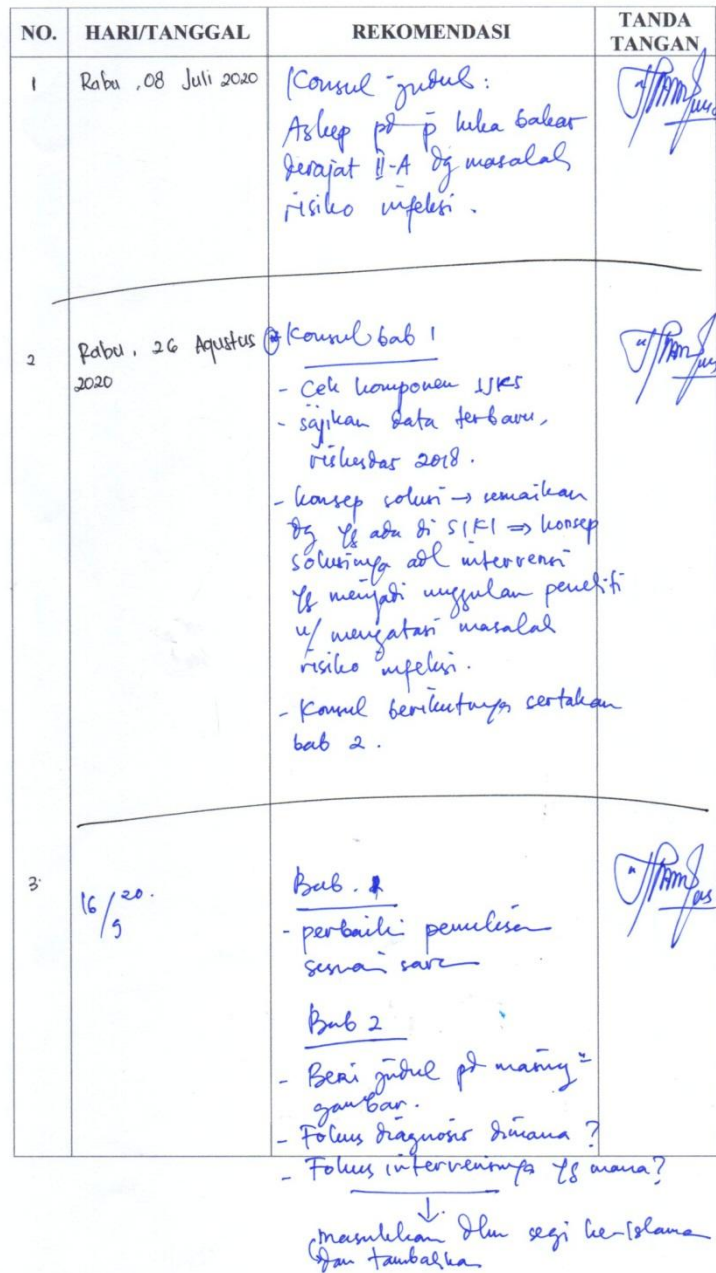 NO. HARI/TANGGAL REKOMENDASI TANDA TANGAN
1 Rabu, 08 Juli 2020 Konsul judul :
Askep pd p luka bakar
derajat II-A dg masalah
risiko infeksi.
2 Rabu, 26 Agustus 2020
Konsul bab 1
- Cek komponen IJKS
- sajikan data terbaru,
riskesdas 2018.
- konsep solusi → sesuaikan
dg yg ada di SIKI ⇒ konsep
solusinya adl intervensi
yg menjadi unggulan peneliti
u/ mengatasi masalah
risiko infeksi.
- Konsul berikutnya sertakan
bab 2.
3. 16/9 20.
Bab. 1
- perbaiki penulisan
sesuai saran
Bab 2
- Beri judul pd masing =
gambar.
- Fokus diagnosis dimana ?
- Fokus intervensinya yg mana ?
↓
masukkan dlm segi keislaman
dan tambahkan